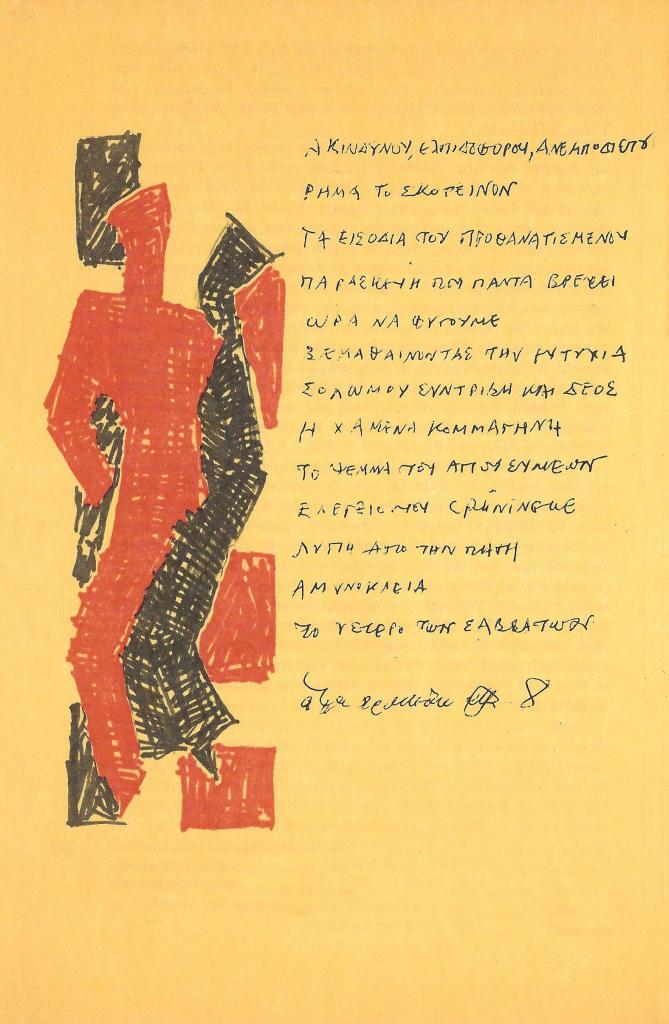 ΑΚΙΝΔΥΝΟΥ, ΕΛΠΙΔΟΦΟΡΟΥ, ΑΝΕΜΠΟΔΙΣΤΟΥ
ΡΗΜΑ ΤΟ ΣΚΟΤΕΙΝΟΝ
ΤΑ ΕΙΣΟΔΙΑ ΤΟΥ ΠΡΟΘΑΝΑΤΙΣΜΕΝΟΥ
ΠΑΡΑΣΚΕΥΗ ΠΟΥ ΠΑΝΤΑ ΒΡΕΧΕΙ
ΩΡΑ ΝΑ ΦΥΓΟΥΜΕ
ΞΕΜΑΘΑΙΝΟΝΤΑΣ ΤΗΝ ΕΥΤΥΧΙΑ
ΣΟΛΩΜΟΥ ΣΥΝΤΡΙΒΗ ΚΑΙ ΔΕΟΣ
Η ΧΑΜΕΝΗ ΚΟΜΜΑΓΗΝΗ
ΤΟ ΤΟΥ ΑΓΙΟΥ ΣΥΜΕΩΝ
ΕΛΕΓΕΙΟ ΤΟΥ GRÜNINGEN
ΛΥΠΗ ΑΠΟ ΤΗΝ ΠΗΓΗ
ΑΜΥΝΟΚΛΕΙΑ
ΤΟ ΥΣΤΕΡΟ ΤΩΝ ΣΑΒΒΑΤΩΝ